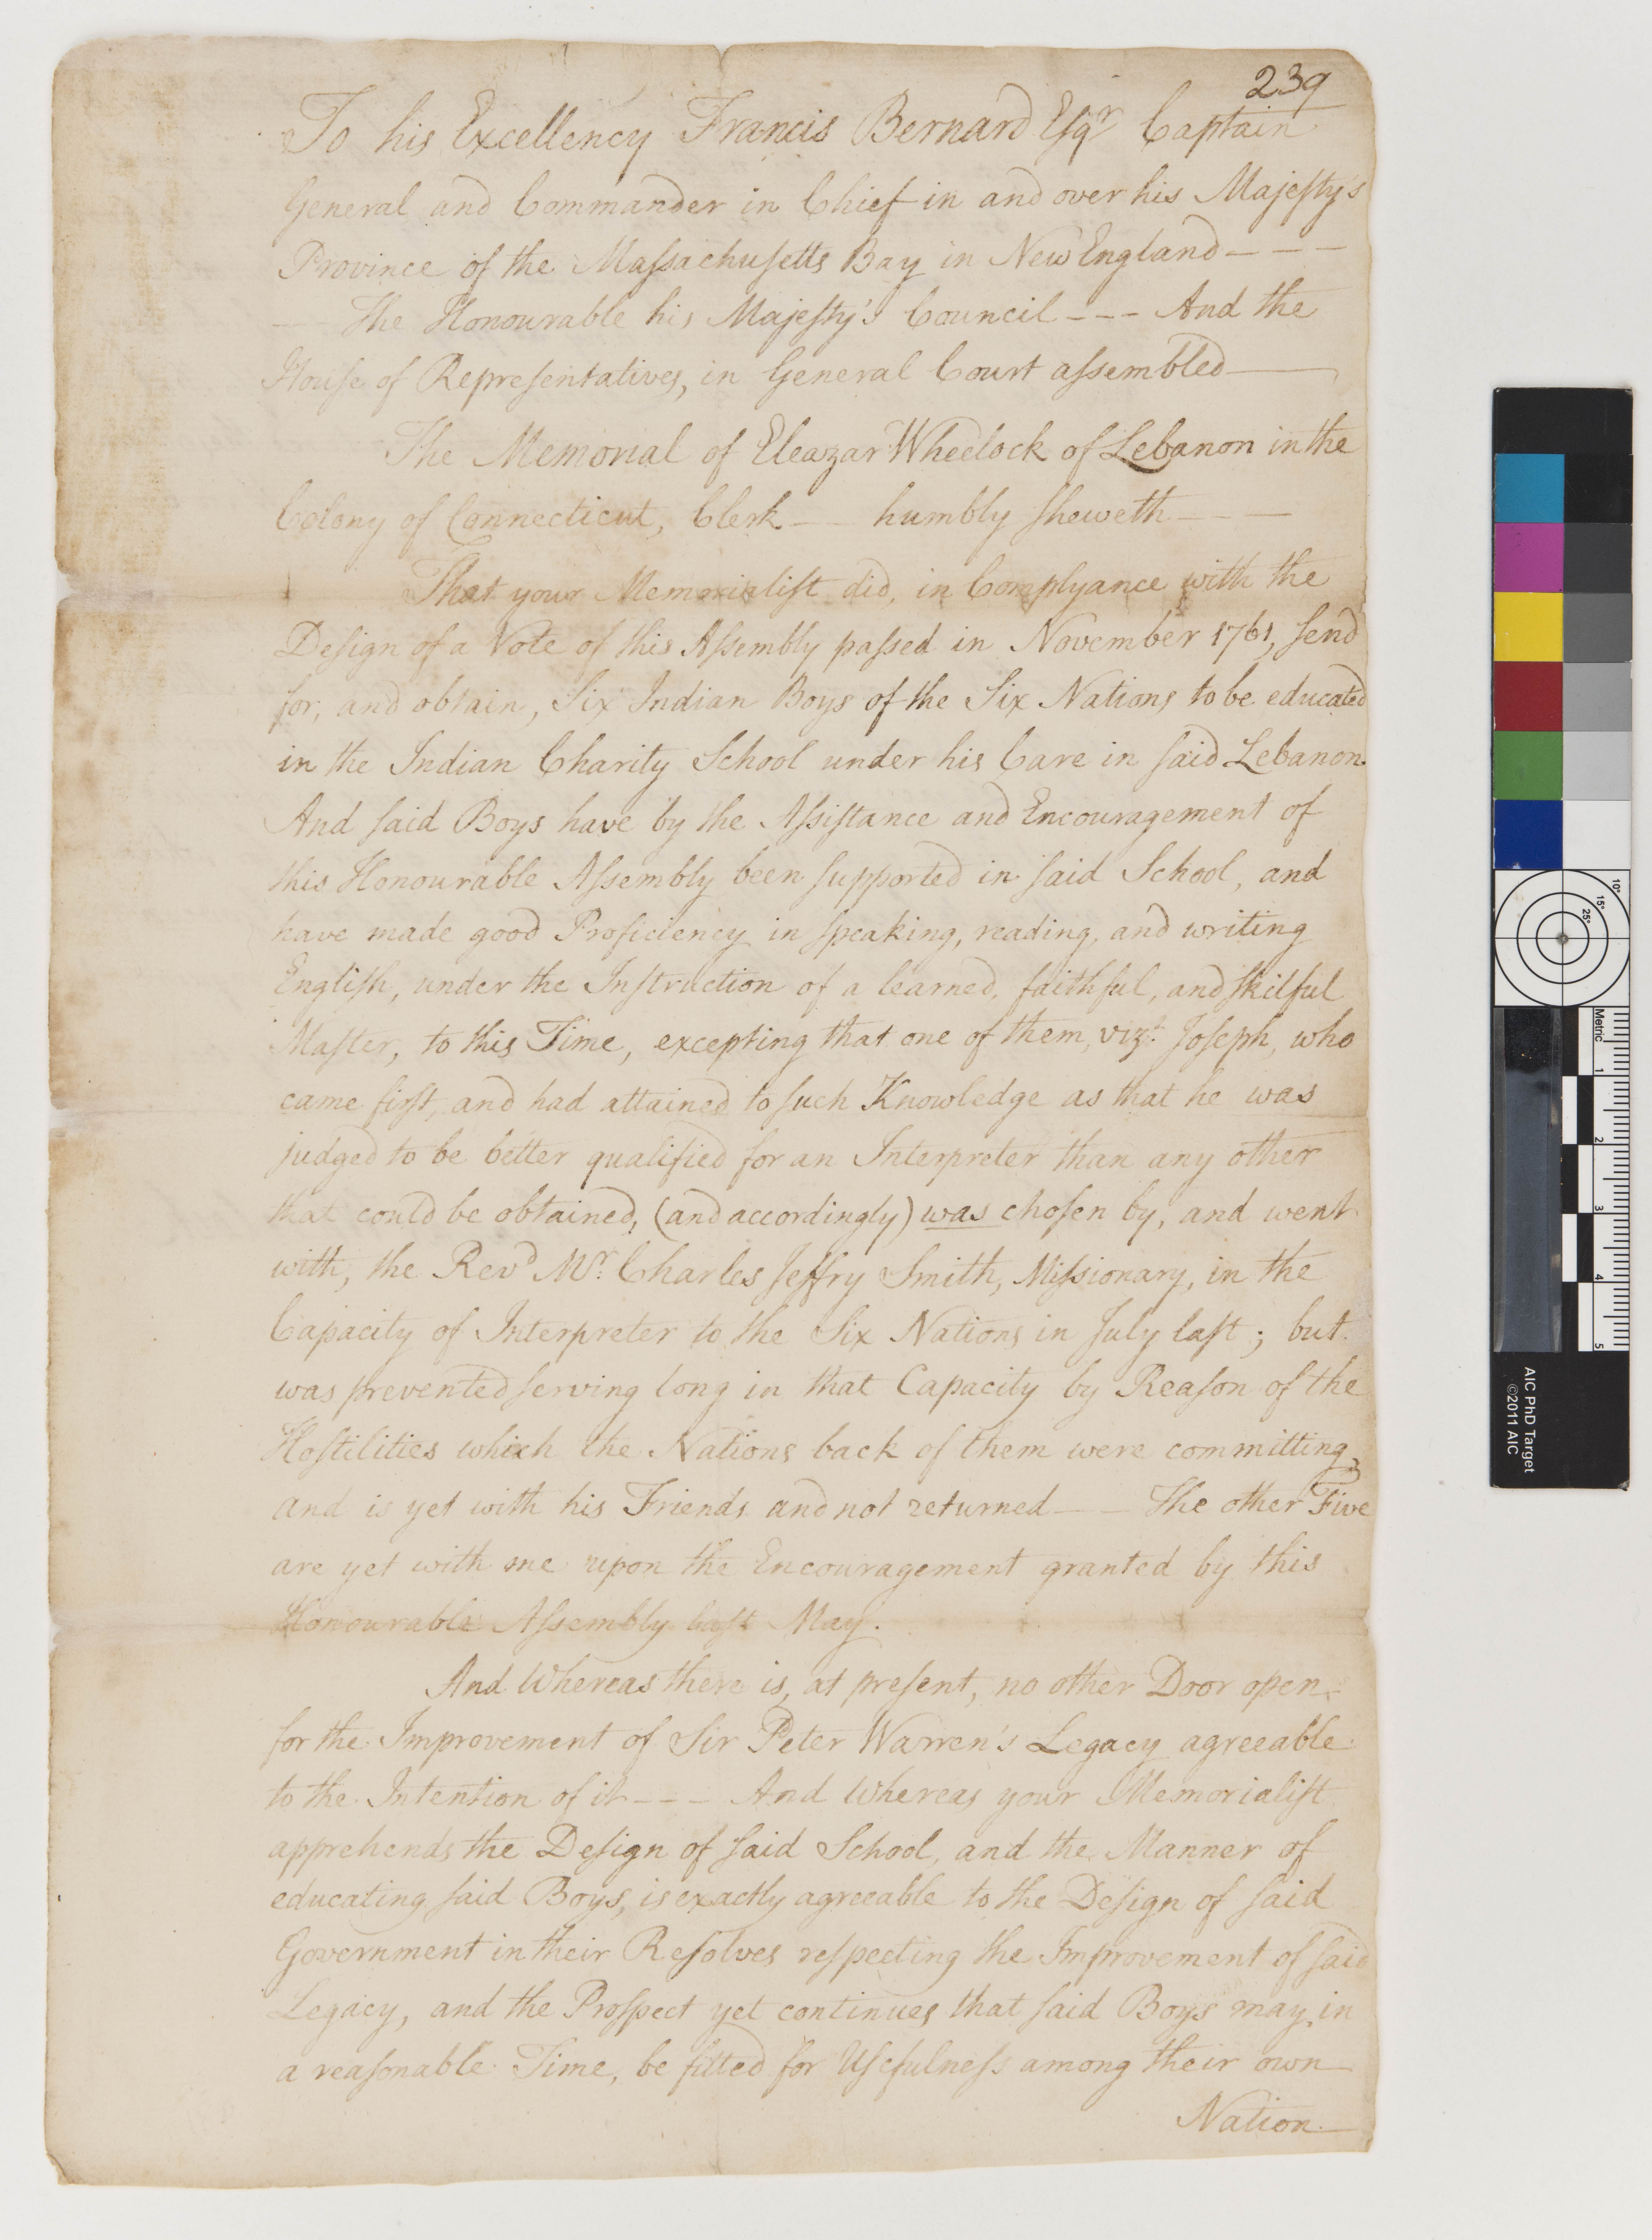 239
To his Excellency Francis Bernard Esqr Captain
General and Commander in Chief in and over his Majeſty's
Province of the Maſsachuſetts Bay in New England - - -
- The Honourable his Majeſty's Council - - - And the
Houſe of Repreſentatives, in General Court aſsembled -
The Memorial of Eleazar Wheelock of Lebanon in the
Colony of Connecticut, Clerk - - humbly ſheweth - -
That your Memorialiſt did, in Complyance with the
Deſign of a Vote of this Aſsembly paſsed in November 1761, ſend
for, and obtain, Six Indian Boys of the Six Nations to be educated
in the Indian Charity School under his Care in ſaid Lebanon.
And ſaid Boys have by the Aſsiſtance and Encouragement of
this Honourable Aſsembly been ſupported in ſaid School, and
have made good Proficiency in ſpeaking, reading, and writing
Engliſh, under the Inſtruction of a learned, faithful, and ſkilful
Maſter, to this Time, excepting that one of them, vizt. Joſeph, who
came firſt, and had attained to ſuch Knowledge as that he was
judged to be better qualified for an Interpreter than any other
that could be obtained, (and accordingly) was choſen by, and went
with, the Revd Mr. Charles Jeffry Smith, Miſsionary, in the
Capacity of Interpreter to the Six Nations in July laſt; but
was prevented ſerving long in that Capacity by Reaſon of the
Hoſtilities which the Nations back of them were committing,
and is yet with his Friends and not returned - - The other Five
are yet with me upon the Encouragement granted by this
Honourable Aſsembly laſt May.
And Whereas there is, at preſent, no other Door open
for the Improvement of Sir Peter Warren's Legacy agreeable
to the Intention of it - - - And Whereas your Memorialiſt
apprehends the Deſign of ſaid School, and the Manner of
educating ſaid Boys, is exactly agreeable to the Deſign of ſaid
Government in their Reſolves reſpecting the Improvement of ſaid
Legacy, and the Proſpect yet continues that ſaid Boys may, in
a reaſonable Time, be fitted for Uſefulneſs among their own
Nation
10°
15°
25°
Metric
1
2
3
4
5
AIC PhD Target
©2011 AIC